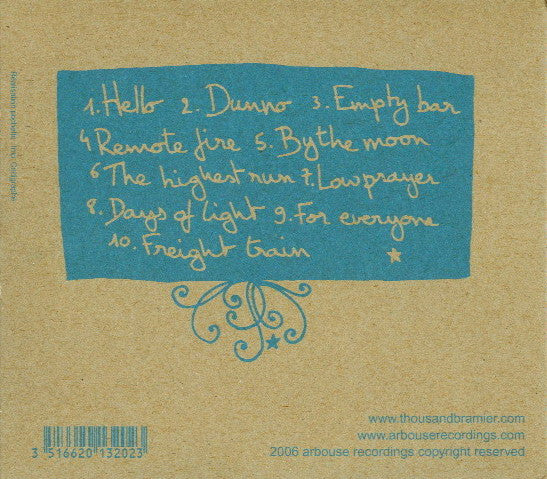 1. Hello 2. Dunno 3. Empty bar
4 Remote fire 5. By the moon
6 The highest nun 7. Low prayer
8. Days of light 9. For everyone
10. Freight train
www.thousandbramier.com
www.arbouserecordings.com
2006 arbouse recordings copyright reserved
3 516620 132023